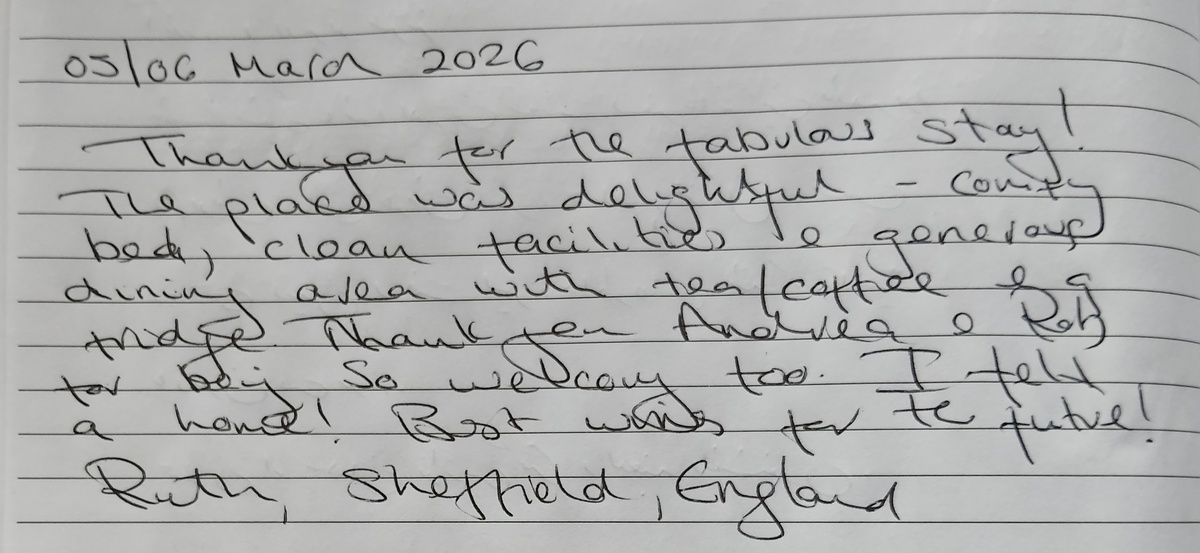 05/06 March 2026
Thank you for the fabulous stay!
The place was delightful - comfy
beds, clean facilities & generous
dining area with tea/coffee & a
fridge. Thank you Andrea & Rob
for being so welcoming too. I felt
a home! Best wishes for the future!
Ruth, Sheffield, England